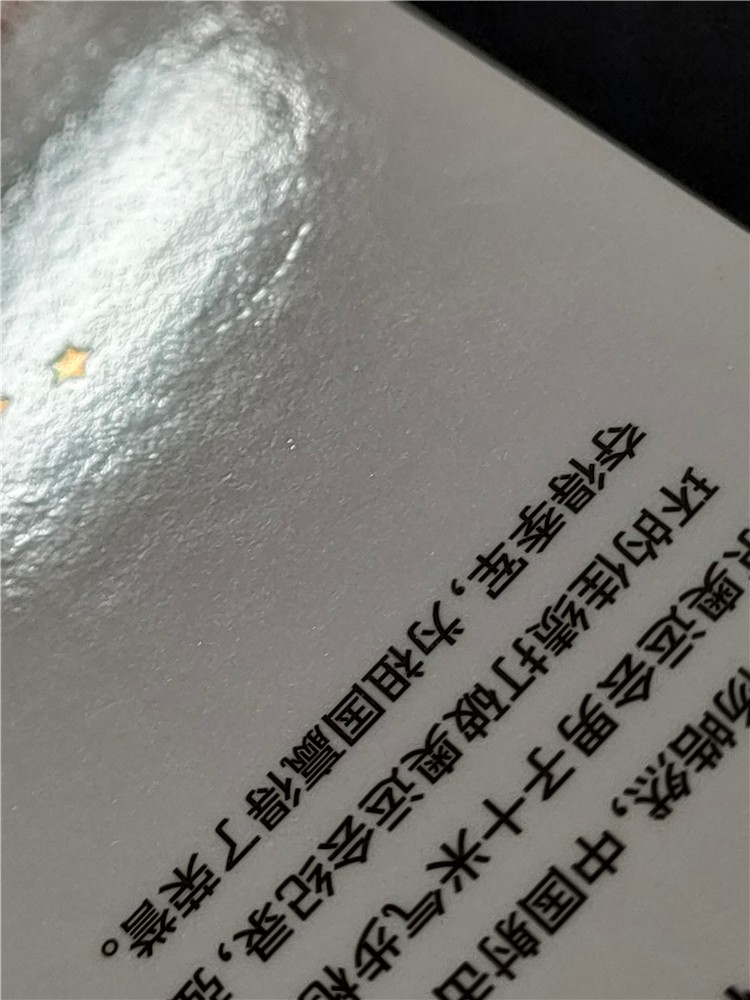 皓然，中国射击
奥运会男子十米气步枪
环的佳绩打破奥运会纪录，强
夺得季军，为祖国赢得了荣誉。